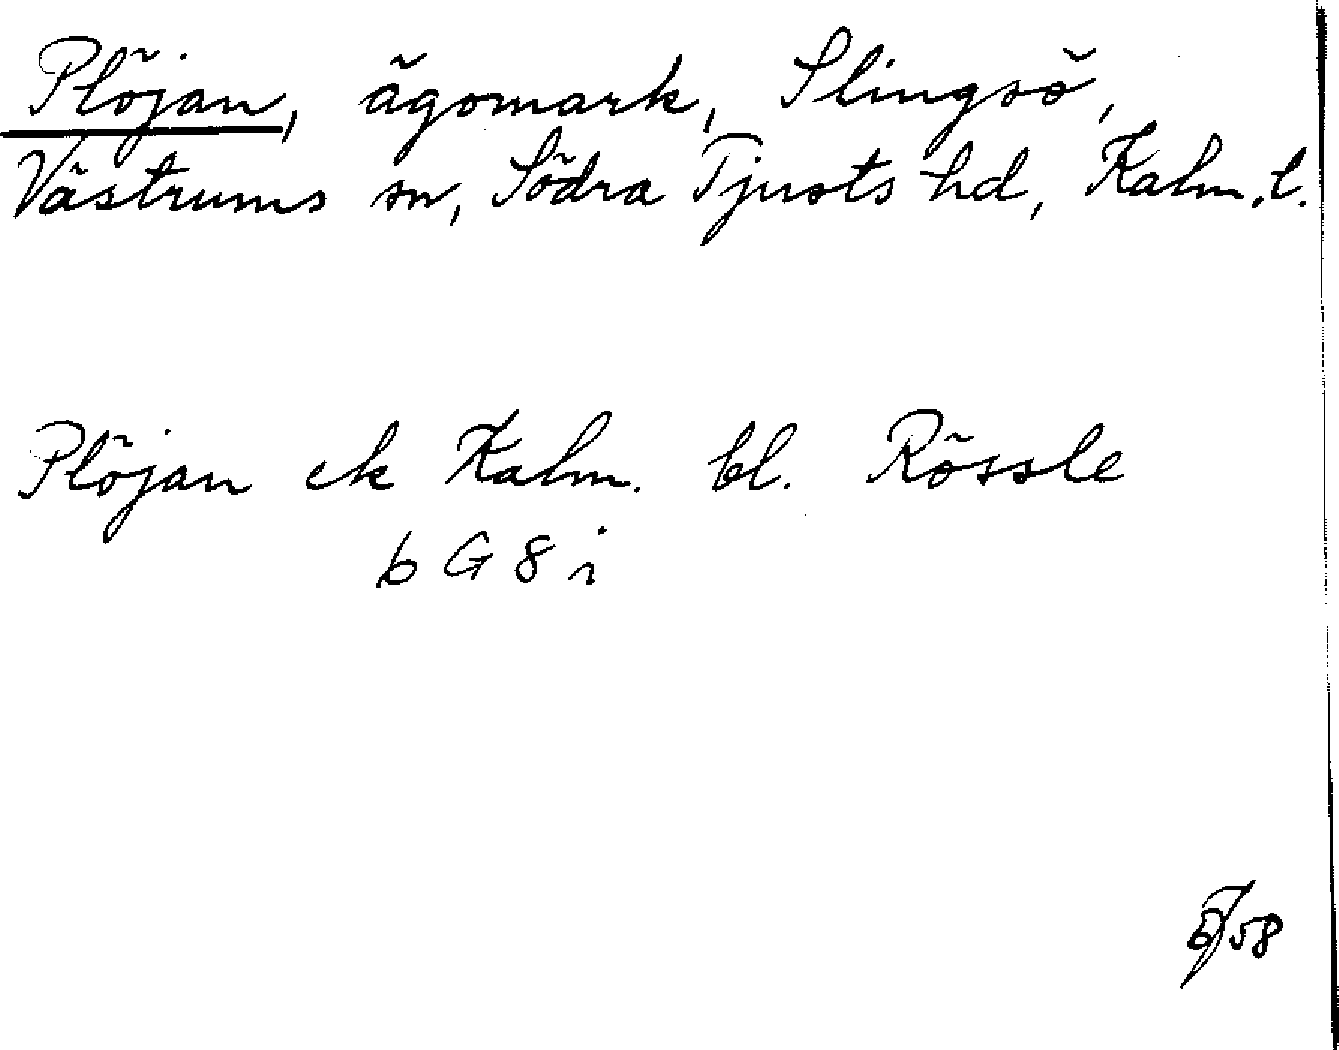 Plöjan, ägomark, Slingsö,
Västrums sn, Södra Tjusts hd, Kalm. l.
Plöjan ek Kalm. bl. Rössle
6 G 8 i